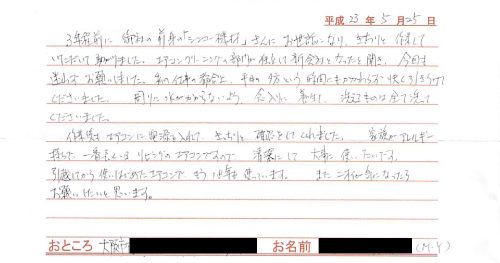 平成 23 年 5 月 25 日
3年程前に 御社の前身の「シンコー機材」さんに お世話になり、きっちりと 作業して
いただいて 助かりました。エアコンクリーニングの部門が 独立して 新会社となったと聞き、今回も
迷わず お願いしました。私の仕事の都合上、平日の夕方という 時間にもかかわらず 快く引き受けて
くださいました。 周りに水がかからないよう、念入りに養生して、洗えるものは全て洗って
くださいました。
作業後も エアコンに電源を入れて、きっちりと 確認をしてくれました。 家族がアレルギー
持ちで、一番長くいる リビングのエアコンですので 清潔にして 大事に 使いたいです。
引越してから 使いはじめたエアコンで、もう 10年も 使っています。 また ニオイが気になったら
お願いしたいと思います。
おところ 大阪市
お名前 (M.Y)